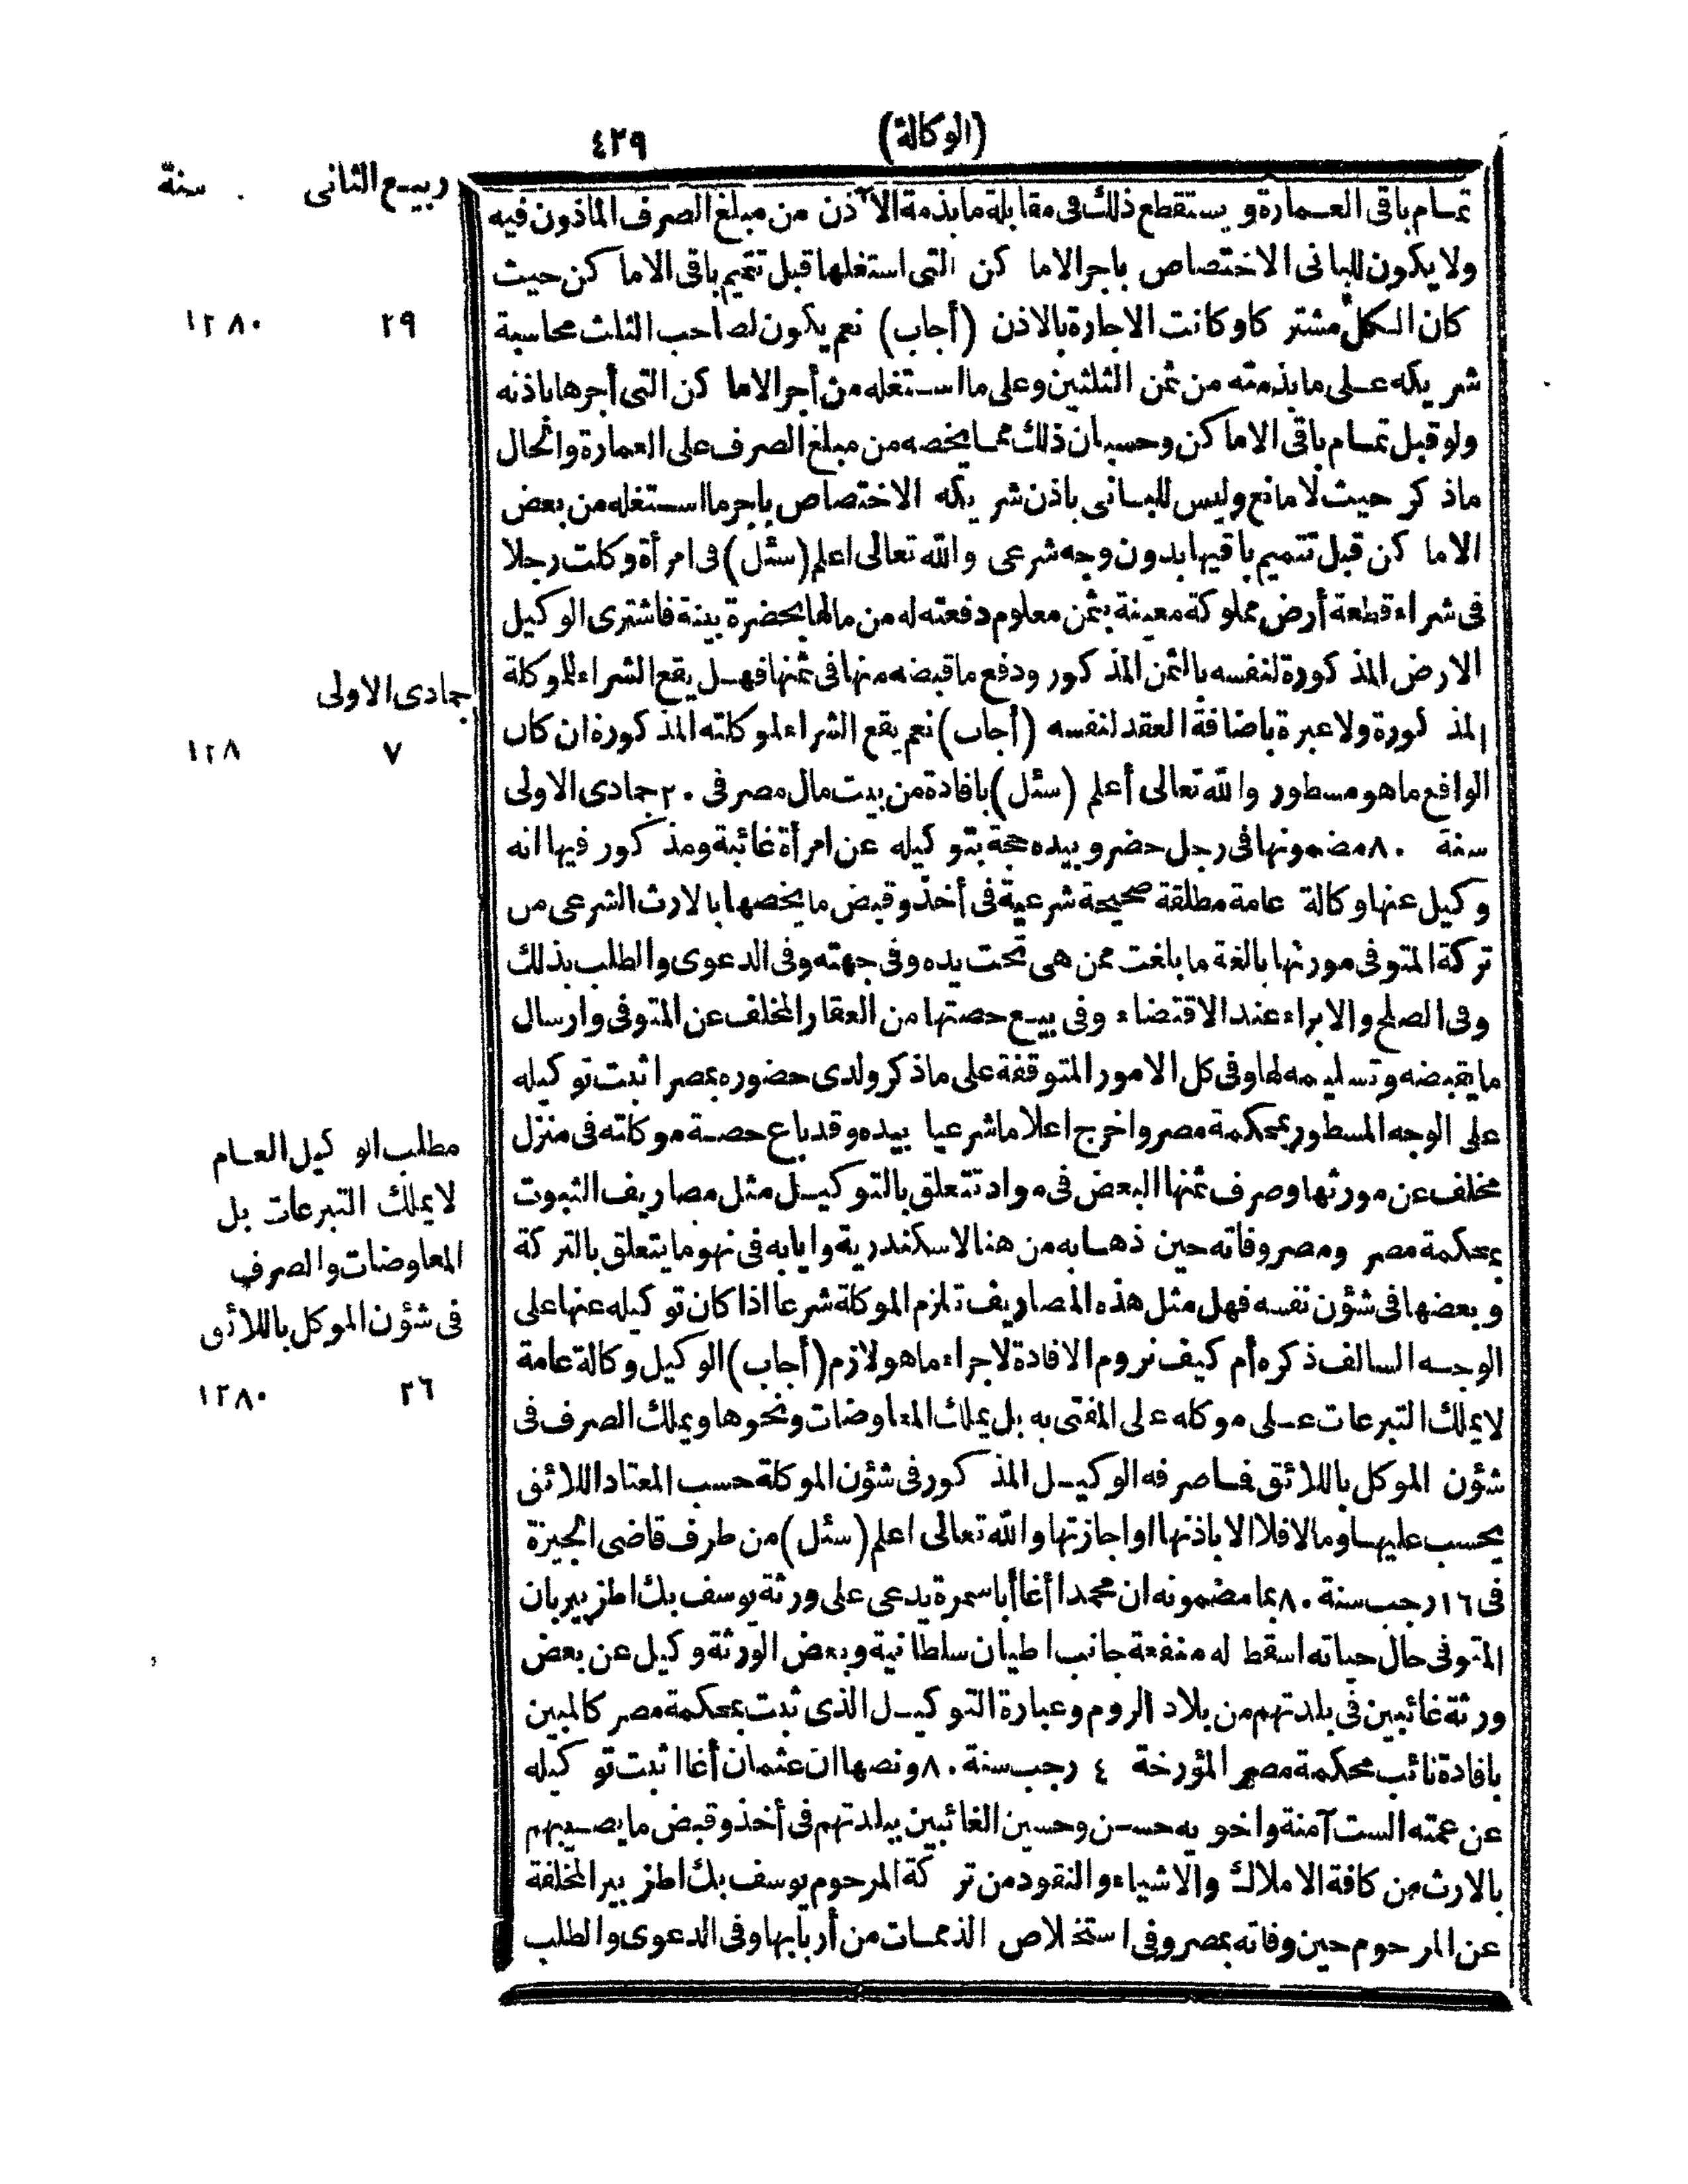 (الوكالة)
٤٢٩
ربيع الثانى
سنة
تمام باقى العمارة ويستقطع ذلك فى مقابلة ما بذمة الآذن من مبلغ الصرف المأذون فيه
ولا يكون للبانى الاختصاص باجر الاماكن التى استغلها قبل تتميم باقى الاماكن حيث
كان الكل مشتركا وكانت الاجارة بالاذن (أجاب) نعم يكون لصاحب الثلث محاسبة
٢٩
١٢٨٠
شريكه على ما بذمته من ثمن الثلثين وعلى ما استغله من أجر الاماكن التى أجرها باذنه
ولو قبل تمام باقى الاماكن وحسبان ذلك مما يخصه من مبلغ الصرف على العمارة والحال
ماذكر حيث لا مانع وليس للبانى باذن شريكه الاختصاص باجر ما استغله من بعض
الاماكن قبل تتميم باقيها بدون وجه شرعى والله تعالى اعلم (سئل) فى امرأة وكلت رجلا
فى شراء قطعة أرض مملوكة معينة بثمن معلوم دفعته له من مالها بحضرة بينة فاشترى الوكيل
الارض المذكورة لنفسه بالثمن المذكور ودفع ما قبضه منها فى ثمنها فهل يقع الشراء للموكلة
جمادى الاولى
المذكورة ولا عبرة باضافة العقد لنفسه (أجاب) نعم يقع الشراء لموكلته المذكورة ان كان
٧
١٢٨
الواقع ما هو مسطور والله تعالى أعلم (سئل) بافادة من بيت مال مصر فى ٢٠ جمادى الاولى
سنة ٨٠ مضمونها فى رجل حضر وبيده حجة بتوكيله عن امرأة غائبة ومذكور فيها انه
وكيل عنها وكالة عامة مطلقة صحيحة شرعية فى أخذ وقبض ما يخصها بالارث الشرعى من
تركة المتوفى مورثها بالغة ما بلغت ممن هى تحت يده وفى جهته وفى الدعوى والطلب بذلك
وفى الصلح والابراء عند الاقتضاء وفى بيع حصتها من العقار المخلف عن المتوفى وارسال
ما يقبضه وتسليمه لها وفى كل الامور المتوقفة على ما ذكر ولدى حضوره بمصر اثبت توكيله
على الوجه المسطور بمحكمة مصر واخرج اعلاما شرعيا بيده وقد باع حصة موكلته فى منزل
مخلف عن مورثها وصرف ثمنها البعض فى مواد تتعلق بالتوكيل مثل مصاريف الثبوت
بمحكمة مصر ومصروفاته حين ذهابه من هنا لاسكندرية وايابه فى نهو ما يتعلق بالتركة
وبعضها فى شؤن نفسه فهل مثل هذه المصاريف تلزم الموكلة شرعا اذا كان توكيله عنها على
الوجه السالف ذكره أم كيف نروم الافادة لاجراء ما هو لازم (أجاب) الوكيل وكالة عامة
لا يملك التبرعات على موكله على المفتى به بل يملك المعاوضات ونحوها ويملك الصرف فى
شؤن الموكل باللائق فما صرفه الوكيل المذكور فى شؤن الموكلة حسب المعتاد اللائق
يحسب عليها وما لا فلا الا باذنها او اجازتها والله تعالى اعلم (سئل) من طرف قاضى الجيزة
مطلب الوكيل العام
لا يملك التبرعات بل
المعاوضات والصرف
فى شؤن الموكل باللائق
٢٦
١٢٨٠
فى ١٦ رجب سنة ٨٠ بما مضمونه ان محمدا أغا أبا سمرة يدعى على ورثة يوسف بك اطز بير بان
المتوفى حال حياته اسقط له منفعة جانب اطيان سلطانية وبعض الورثة وكيل عن بعض
ورثة غائبين فى بلدتهم من بلاد الروم وعبارة التوكيل الذى ثبت بمحكمة مصر كالمبين
بافادة نائب محكمة مصر المؤرخة ٤ رجب سنة ٨٠ ونصها ان عثمان أغا اثبت توكيله
عن عمته الست آمنة واخويه حسن وحسين الغائبين ببلدتهم فى أخذ وقبض ما يصيبهم
بالارث من كافة الاملاك والاشياء والنقود من تركة المرحوم يوسف بك اطز بير المخلفة
عن المرحوم حين وفاته بمصر وفى استخلاص الذممات من أربابها وفى الدعوى والطلب